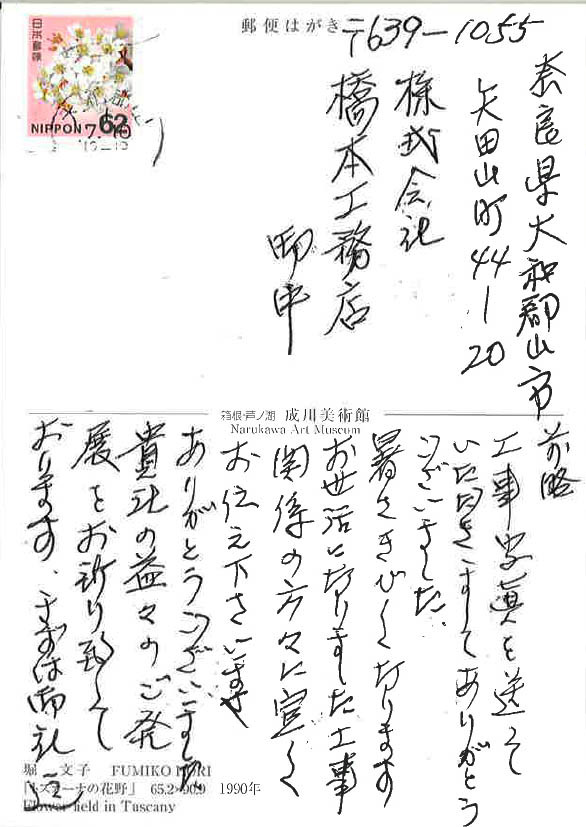 日本郵便
NIPPON 62
7.10
郵便はがき
〒639-1055
奈良県大和郡山市
矢田山町44-20
株式会社
橋本工務店
御中
箱根・芦ノ湖 成川美術館
Narukawa Art Museum
前略
工事写真を送って
いただきましてありがとう
ございました。
暑さきびしくなります
お世話になりました工事
関係の方々に宜しく
お伝え下さいませ
ありがとうございました
貴社の益々のご発
展をお祈り致して
おります、まずは御礼
堀 文子 FUMIKO HORI
「トスカーナの花野」 65.2×90.9 1990年
Flower field in Tuscany